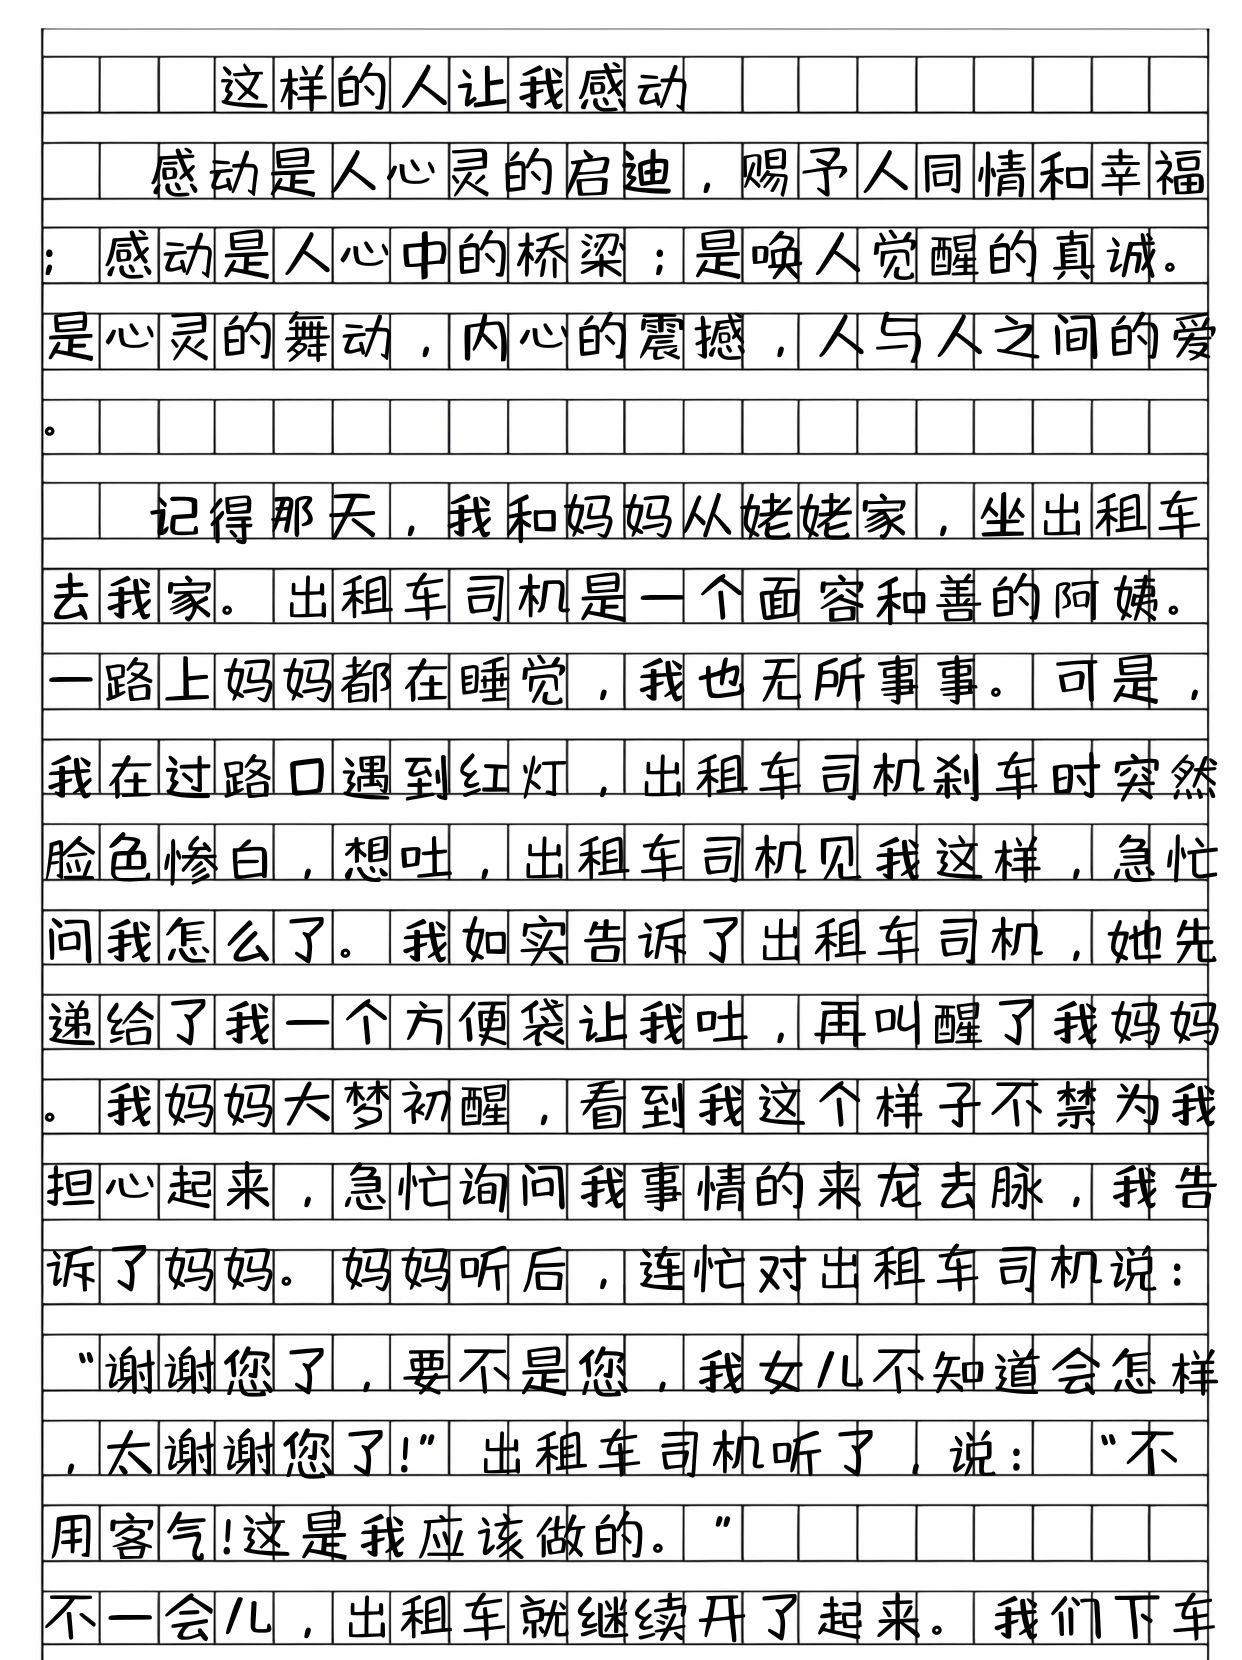 这样的人让我感动
感动是人心灵的启迪，赐予人同情和幸福
；感动是人心中的桥梁；是唤人觉醒的真诚。
是心灵的舞动，内心的震撼，人与人之间的爱
。
记得那天，我和妈妈从姥姥家，坐出租车
去我家。出租车司机是一个面容和善的阿姨。
一路上妈妈都在睡觉，我也无所事事。可是，
我在过路口遇到红灯，出租车司机刹车时突然
脸色惨白，想吐，出租车司机见我这样，急忙
问我怎么了。我如实告诉了出租车司机，她先
递给了我一个方便袋让我吐，再叫醒了我妈妈
。我妈妈大梦初醒，看到我这个样子不禁为我
担心起来，急忙询问我事情的来龙去脉，我告
诉了妈妈。妈妈听后，连忙对出租车司机说：
“谢谢您了，要不是您，我女儿不知道会怎样
，太谢谢您了！”出租车司机听了，说：“不
用客气！这是我应该做的。”
不一会儿，出租车就继续开了起来。我们下车